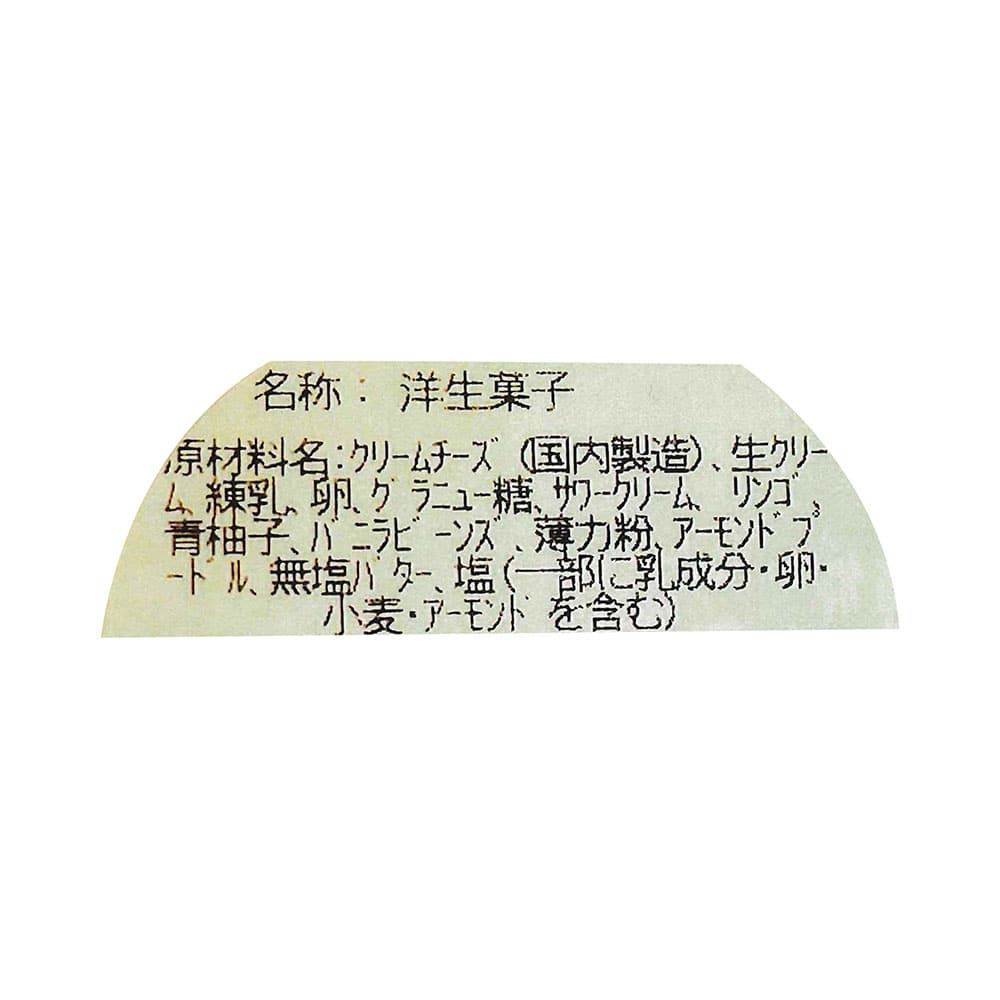 名称：洋生菓子
原材料名:ｸﾘｰﾑﾁｰｽﾞ(国内製造)、生ｸﾘｰ
ﾑ、練乳、卵、ｸﾞﾗﾆｭｰ糖、ｻﾜｰｸﾘｰﾑ、ﾘﾝｺﾞ、
青柚子、ﾊﾞﾆﾗﾋﾞｰﾝｽﾞ、薄力粉、ｱｰﾓﾝﾄﾞﾌﾟ
ｰﾄﾞﾙ、無塩ﾊﾞﾀｰ、塩(一部に乳成分・卵・
小麦・ｱｰﾓﾝﾄﾞを含む)